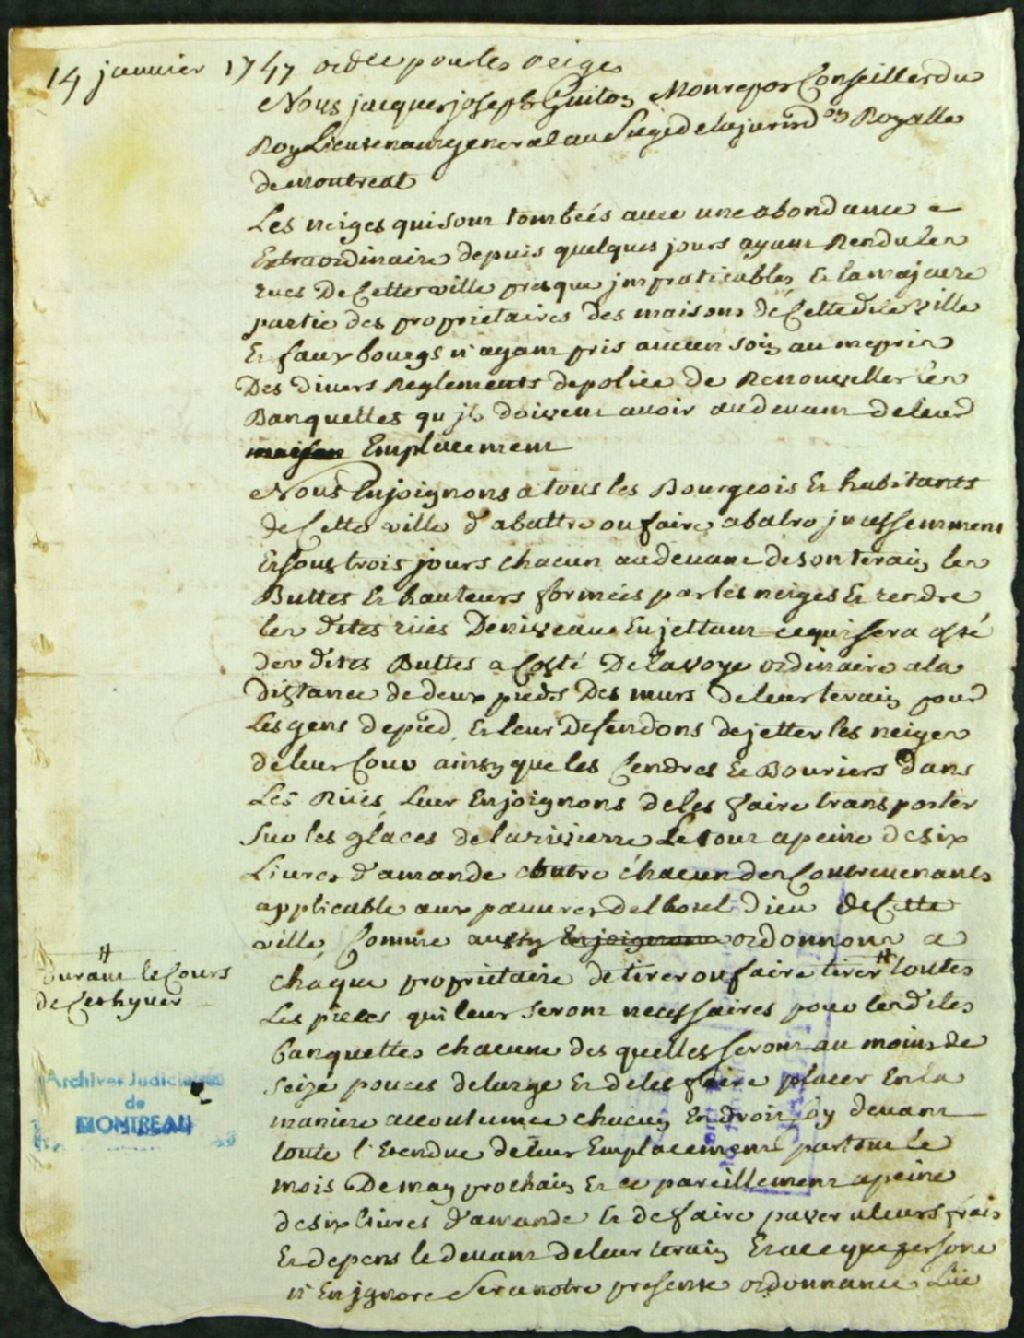 14 janvier 1747 ordce pour les neiges
Nous jacques joseph Guiton Monrepos Conseiller du
Roy Lieutenant general au Siege de la jurisdon Royalle
de montreal
Les neiges qui sont tombées avec une abondance
Extraordinaire depuis quelques jours ayant Rendu les
rues De Cette ville presque jmpraticables Et la majeure
partie des proprietaires des maisons de Cette dte ville
Et faux bourgs n'ayant pris aucun soin au mepris
Des divers Reglements de police de Renouveller les
Banquettes qu'jls doivent avoir au devant de leur
maison Emplacement
Nous Enjoignons a tous les Bourgeois Et habitants
de Cette ville d'abattre ou faire abatre jncessemment
Et sous trois jours chacun au devant de son terain les
Buttes Et hauteurs formées par les neiges Et rendre
les dites rües De niveau En jettant ce qui sera osté
des dites Buttes a Costé De la voye ordinaire a la
distance de deux pieds Des murs de leur terain pour
Les gens de pied, Et leur Defendons de jetter les neiges
de leur Cour ainsy que les Cendres Et Bouriers dans
Les Rües, Leur Enjoignons de les faire transporter
Sur les glaces de la riviere Le tout a peine de six
Livres d'amande contre chacun des Contrevenants
applicable aux pauvres de l'hotel Dieu de Cette
ville, Comme aussy Enjoignons ordonnons a
chaque proprietaire de tirer ou faire tirer # toutes
#
durant le Cours
de Cet hyver
Les pieces qui leur seront necessaires pour les dites
banquettes chacune des quelles seront au moins de
seize pouces de large Et de les faire placer En la
maniere accoutumée chacun En droit soy devant
toute l'Etendue de leur Emplacement partout le
mois De may prochain Et ce pareillement a peine
de six livres d'amande Et de faire paver a leurs frais
Et depens le devant de leur terain Et a ce que personne
n'En jgnore Sera notre presente ordonnance Lüe
Archives Judiciaires
de
MONTREAL